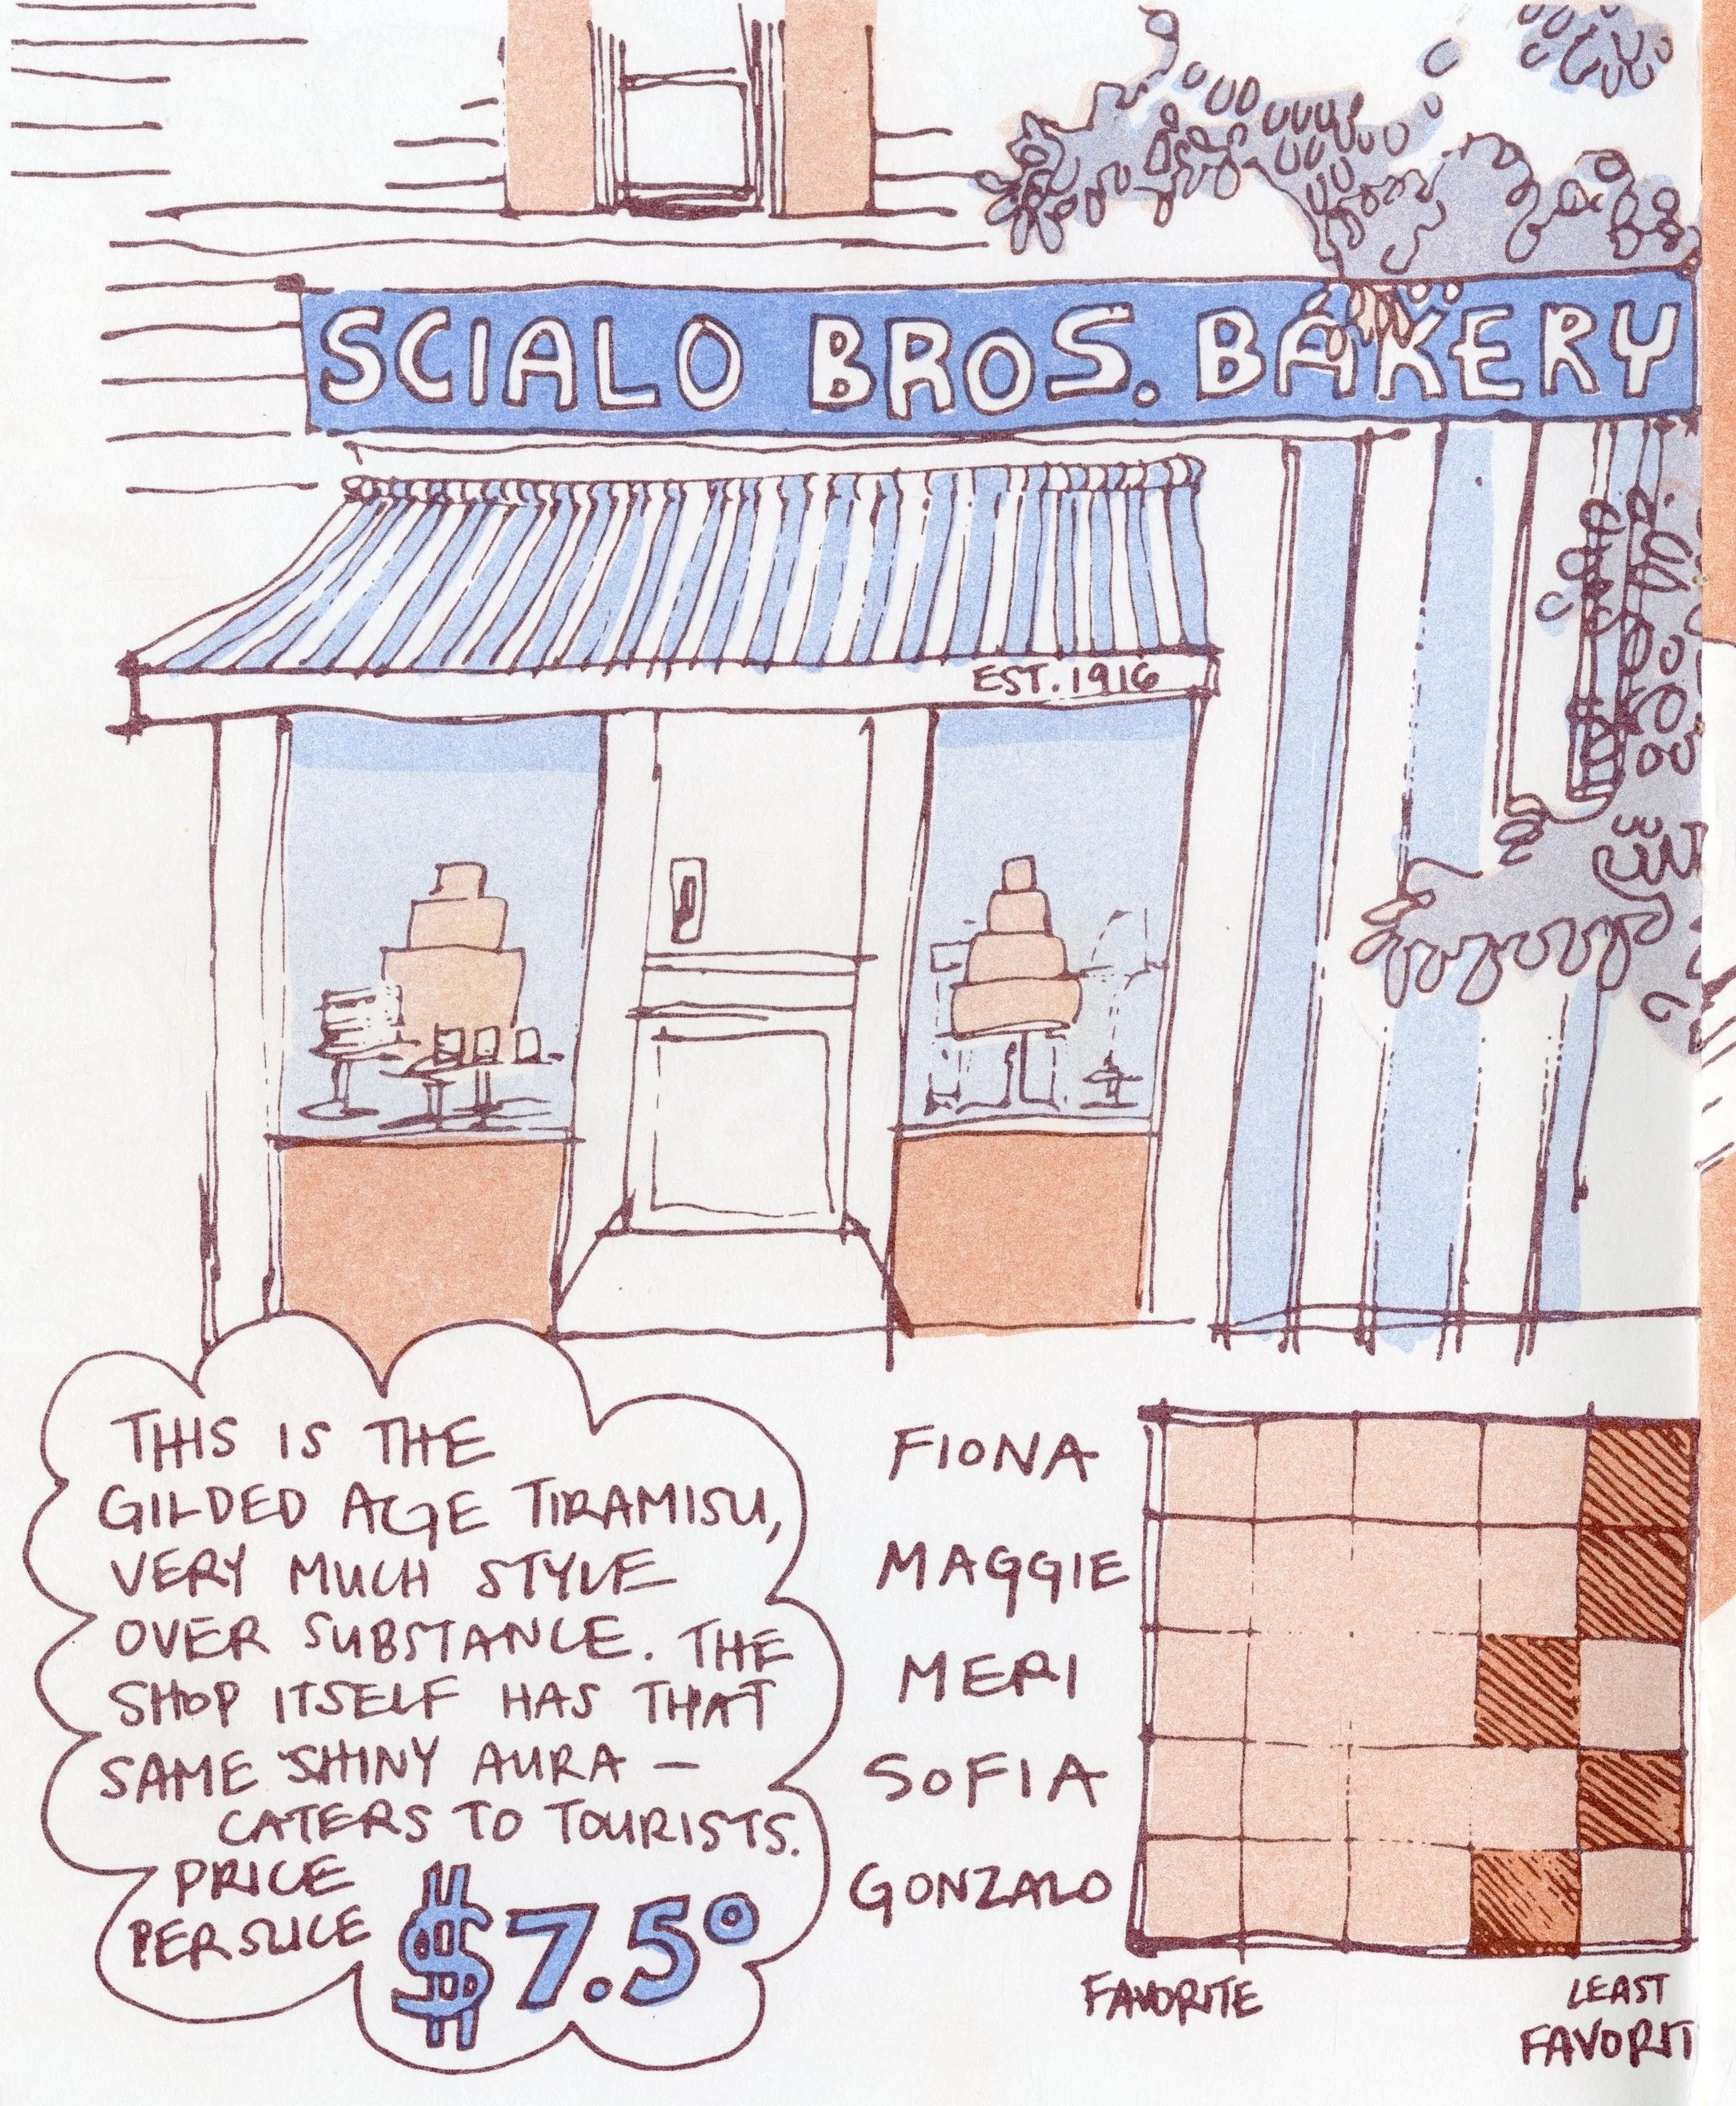 SCIALO BROS. BAKERY
EST. 1916
THIS IS THE
GILDED AGE TIRAMISU,
VERY MUCH STYLE
OVER SUBSTANCE. THE
SHOP ITSELF HAS THAT
SAME SHINY AURA —
CATERS TO TOURISTS.
PRICE
PER SLICE
$7.50
FIONA
MAGGIE
MERI
SOFIA
GONZALO
FAVORITE
LEAST
FAVORIT